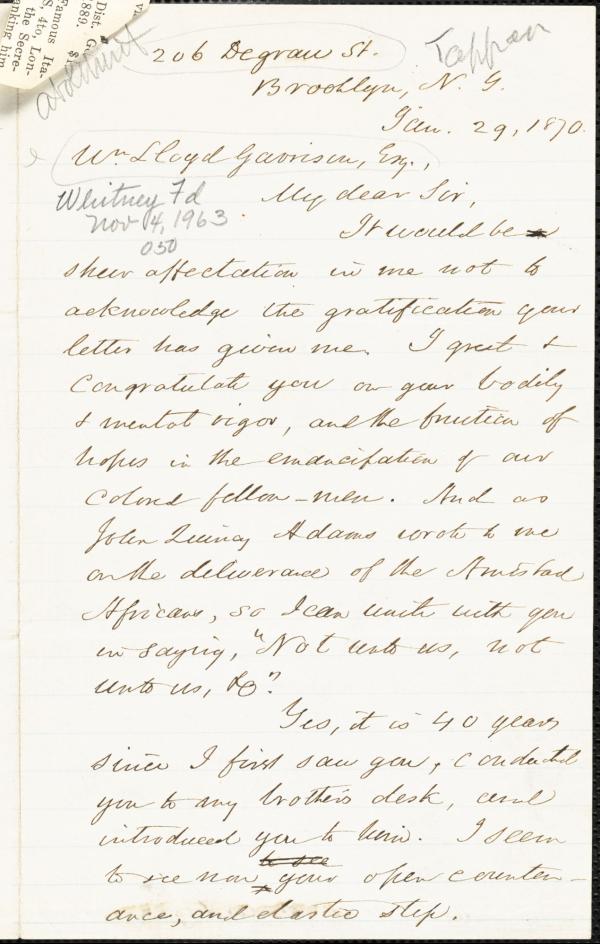 Dist. G
1889. $1
Famous Ita-
S. 4to, Lon-
the Secre-
anking him
abolitionist
Tappan
206 Degraw St.
Brooklyn, N. Y.
Jan. 29, 1870.
Wm Lloyd Garrison, Esq.,
Whitney Fd
Nov 4, 1963
050
My dear Sir,
It would be
sheer affectation in me not to
acknowledge the gratification your
letter has given me. I greet &
congratulate you on your bodily
& mental vigor, and the fruition of
hopes in the emancipation of our
colored fellow-men. And as
John Quincy Adams wrote to me
on the deliverance of the Amistad
Africans, so I can unite with you
in saying, "Not unto us, not
unto us, &c".
Yes, it is 40 years
since I first saw you, conducted
you to my brother's desk, and
introduced you to him. I seem
to see
to see now your open counten-
ance, and elastic step.